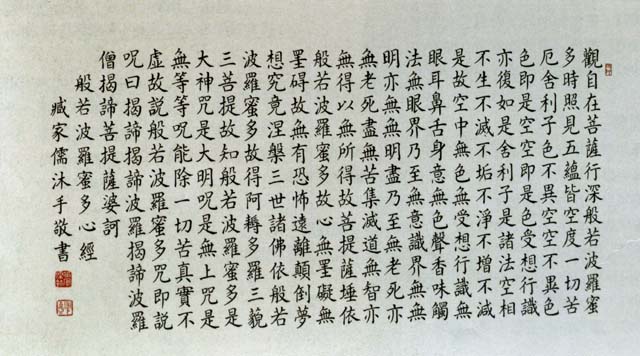 觀自在菩薩行深般若波羅蜜
多時照見五蘊皆空度一切苦
厄舍利子色不異空空不異色
色即是空空即是色受想行識
亦復如是舍利子是諸法空相
不生不滅不垢不淨不增不減
是故空中無色無受想行識無
眼耳鼻舌身意無色聲香味觸
法無眼界乃至無意識界無無
明亦無無明盡乃至無老死亦
無老死盡無苦集滅道無智亦
無得以無所得故菩提薩埵依
般若波羅蜜多故心無罣礙無
罣碍故無有恐怖遠離顛倒夢
想究竟涅槃三世諸佛依般若
波羅蜜多故得阿耨多羅三藐
三菩提故知般若波羅蜜多是
大神咒是大明咒是無上咒是
無等等咒能除一切苦真實不
虛故説般若波羅蜜多咒即説
咒曰揭諦揭諦波羅揭諦波羅
僧揭諦菩提薩婆訶
般若波羅蜜多心經
臧家儒沐手敬書